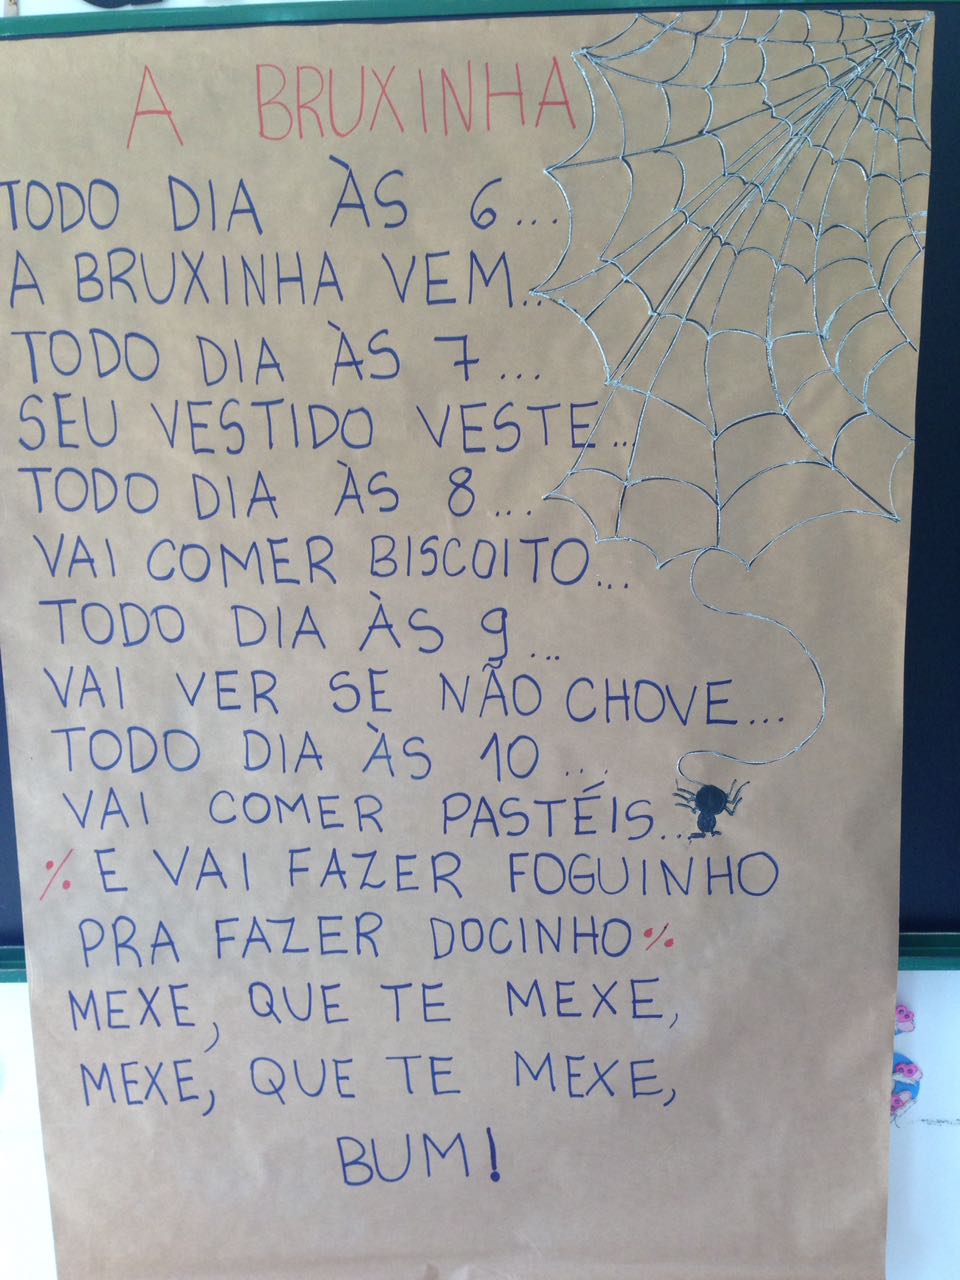 A BRUXINHA
TODO DIA ÀS 6...
A BRUXINHA VEM...
TODO DIA ÀS 7...
SEU VESTIDO VESTE...
TODO DIA ÀS 8...
VAI COMER BISCOITO...
TODO DIA ÀS 9...
VAI VER SE NÃO CHOVE...
TODO DIA ÀS 10...
VAI COMER PASTÉIS...
٪ E VAI FAZER FOGUINHO
PRA FAZER DOCINHO ٪
MEXE, QUE TE MEXE,
MEXE, QUE TE MEXE,
BUM!